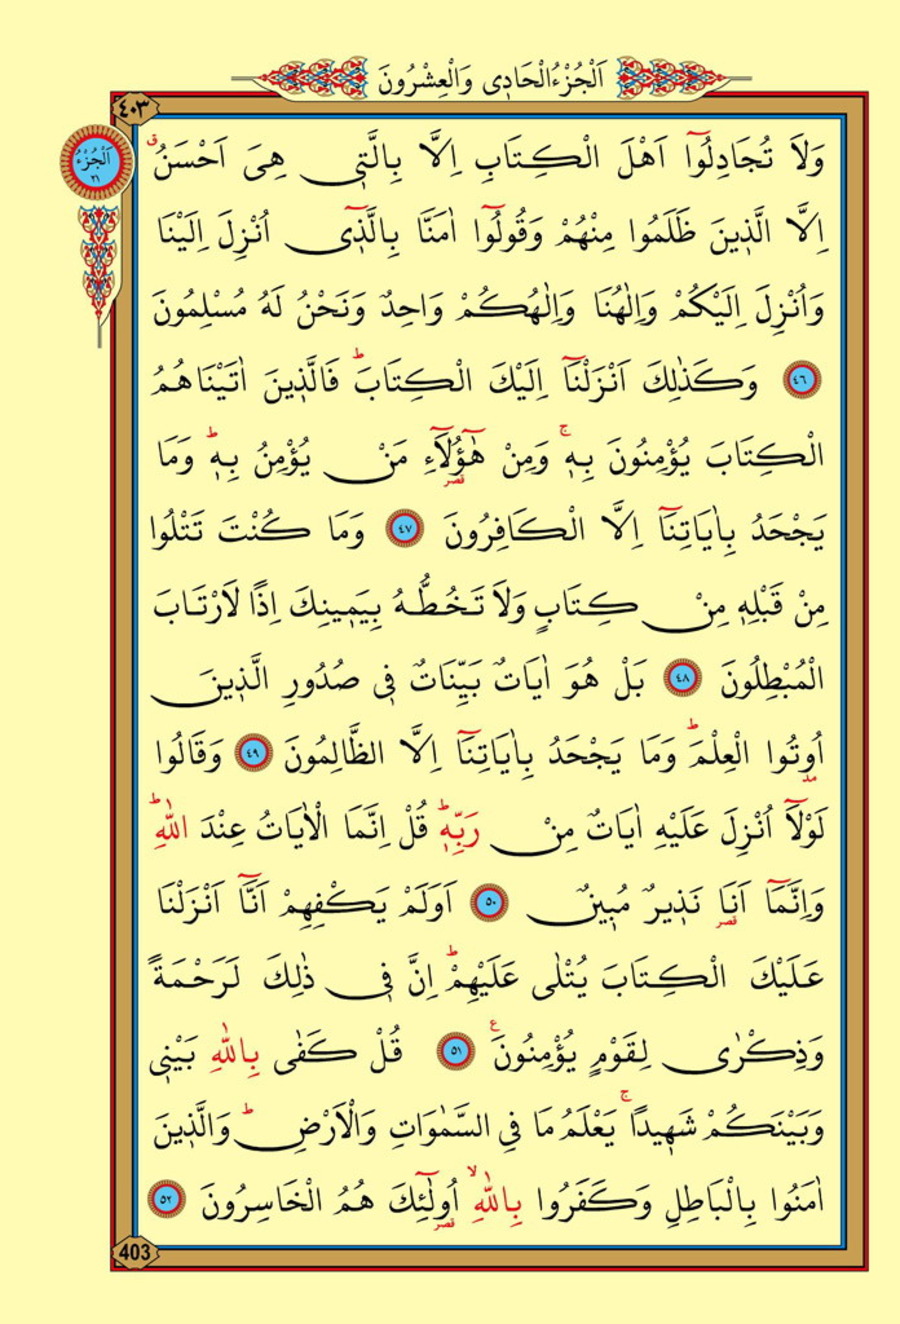 اَلْجُزْءُ الْحَادِى وَالْعِشْرُونَ
٤٠٣
اَلْجُزْءُ
٢١
وَلَا تُجَادِلُٓوا اَهْلَ الْكِتَابِ اِلَّا بِالَّت۪ي هِىَ اَحْسَنُۗ
اِلَّا الَّذ۪ينَ ظَلَمُوا مِنْهُمْ وَقُولُٓوا اٰمَنَّا بِالَّذ۪ٓى اُنْزِلَ اِلَيْنَا
وَاُنْزِلَ اِلَيْكُمْ وَاِلٰهُنَا وَاِلٰهُكُمْ وَاحِدٌ وَنَحْنُ لَهُ مُسْلِمُونَ
٤٦ وَكَذٰلِكَ اَنْزَلْنَٓا اِلَيْكَ الْكِتَابَۜ فَالَّذ۪ينَ اٰتَيْنَاهُمُ
الْكِتَابَ يُؤْمِنُونَ بِه۪ۚ وَمِنْ هٰٓؤُ۬لَٓاءِ مَنْ يُؤْمِنُ بِه۪ۜ وَمَا
يَجْحَدُ بِاٰيَاتِنَٓا اِلَّا الْكَافِرُونَ ٤٧ وَمَا كُنْتَ تَتْلُوا
مِنْ قَبْلِه۪ مِنْ كِتَابٍ وَلَا تَخُطُّهُ بِيَم۪ينِكَ اِذًا لَارْتَابَ
الْمُبْطِلُونَ ٤٨ بَلْ هُوَ اٰيَاتٌ بَيِّنَاتٌ ف۪ى صُدُورِ الَّذ۪ينَ
اُو۫تُوا الْعِلْمَۜ وَمَا يَجْحَدُ بِاٰيَاتِنَٓا اِلَّا الظَّالِمُونَ ٤٩ وَقَالُوا
لَوْلَٓا اُنْزِلَ عَلَيْهِ اٰيَاتٌ مِنْ رَبِّه۪ۜ قُلْ اِنَّمَا الْاٰيَاتُ عِنْدَ اللّٰهِۜ
وَاِنَّمَٓا اَنَا۬ نَذ۪يرٌ مُب۪ينٌ ٥٠ اَوَلَمْ يَكْفِهِمْ اَنَّٓا اَنْزَلْنَا
عَلَيْكَ الْكِتَابَ يُتْلٰى عَلَيْهِمْۜ اِنَّ ف۪ى ذٰلِكَ لَرَحْمَةً
وَذِكْرٰى لِقَوْمٍ يُؤْمِنُونَ۟ ٥١ قُلْ كَفٰى بِاللّٰهِ بَيْن۪ى
وَبَيْنَكُمْ شَه۪يدًاۚ يَعْلَمُ مَا فِى السَّمٰوَاتِ وَالْاَرْضِۜ وَالَّذ۪ينَ
اٰمَنُوا بِالْبَاطِلِ وَكَفَرُوا بِاللّٰهِۙ اُو۬لٰٓئِكَ هُمُ الْخَاسِرُونَ ٥٢
403